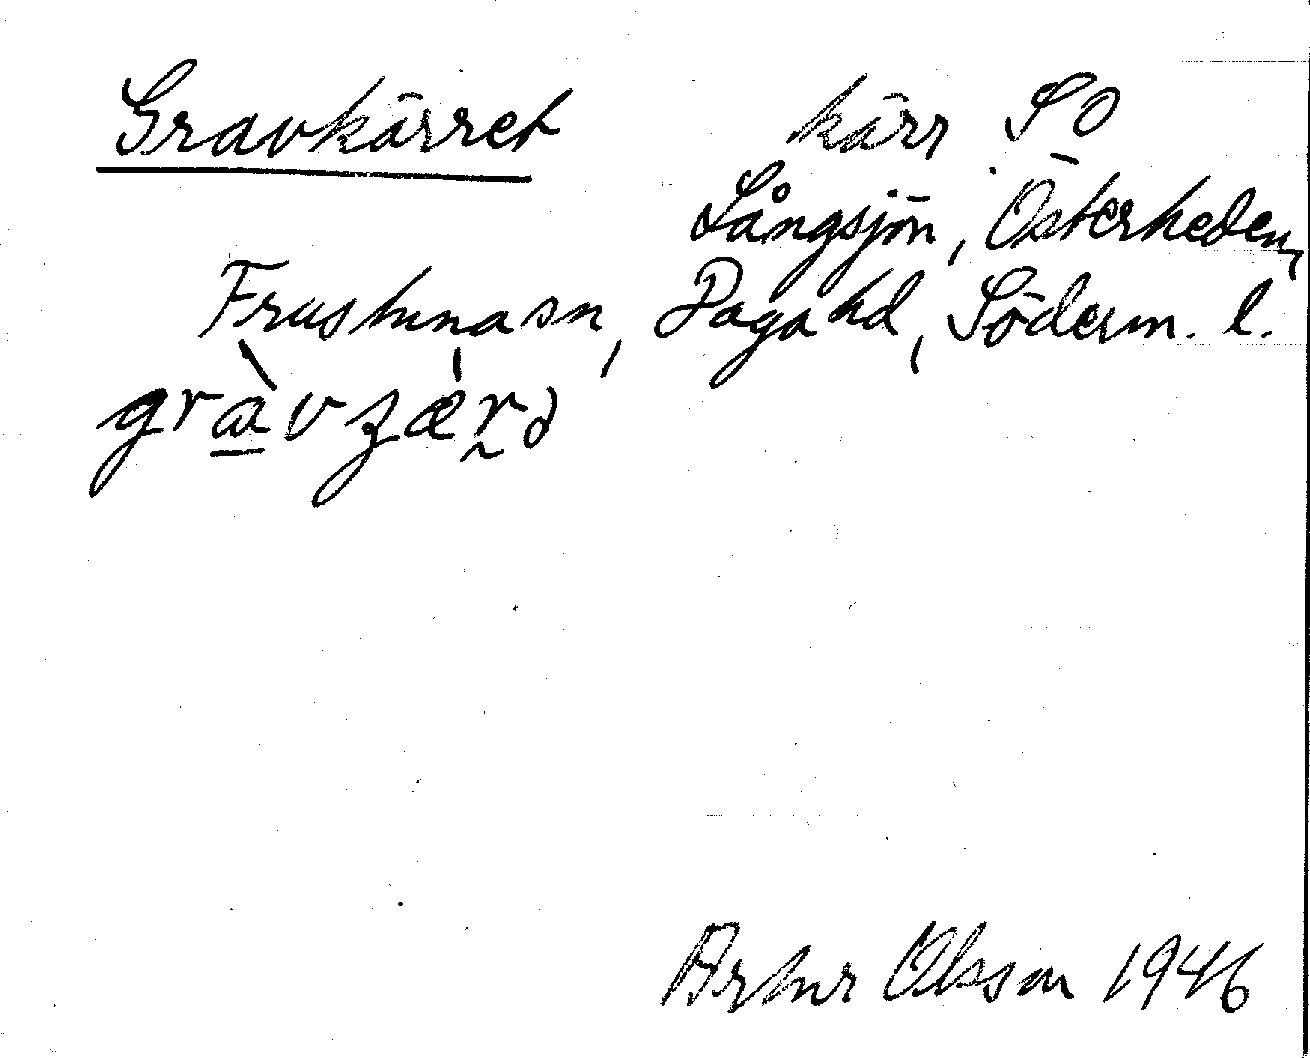 Gravkärret kärr SO
Långsjön, Österheden,
Frustunasn, Daga hd, Söderm. l.
Artur Olsson 1946